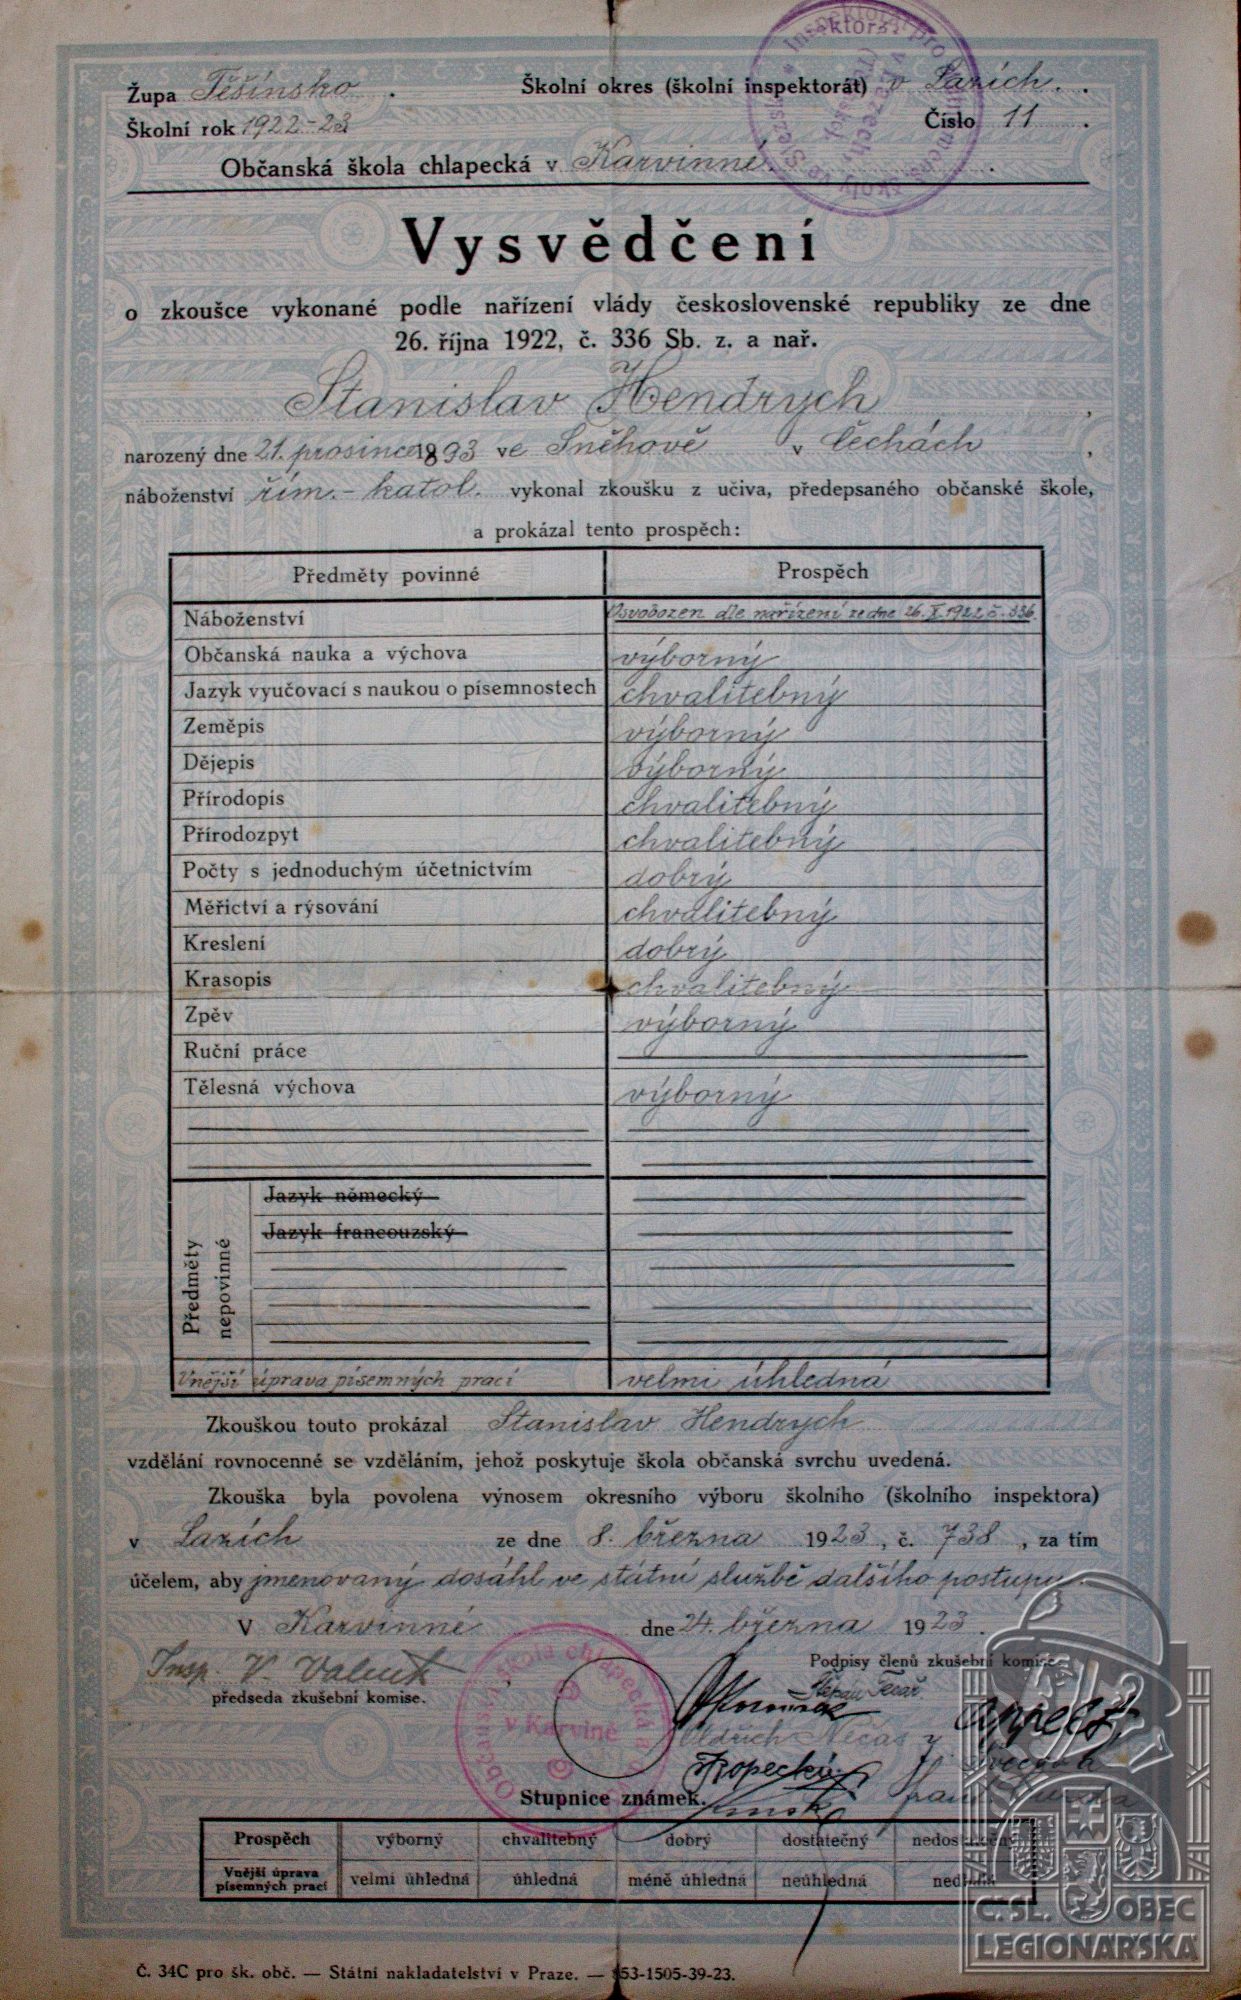 Župa Těšínsko. Školní okres (školní inspektorát) v Lazích.
Školní rok 1922-23 Číslo 11.
Občanská škola chlapecká v Karvinné.
Vysvědčení
o zkoušce vykonané podle nařízení vlády československé republiky ze dne
26. října 1922, č. 336 Sb. z. a nař.
Stanislav Hendrych,
narozený dne 21. prosince 1893 ve Sněhově v Čechách,
náboženství řím.-katol. vykonal zkoušku z učiva, předepsaného občanské škole,
a prokázal tento prospěch:
Předměty povinné Prospěch
Náboženství Osvobozen dle nařízení ze dne 26. X. 1922 č. 336.
Občanská nauka a výchova výborný
Jazyk vyučovací s naukou o písemnostech chvalitebný
Zeměpis výborný
Dějepis výborný
Přírodopis chvalitebný
Přírodozpyt chvalitebný
Počty s jednoduchým účetnictvím dobrý
Měřictví a rýsování chvalitebný
Kreslení dobrý
Krasopis chvalitebný
Zpěv výborný
Ruční práce
Tělesná výchova výborný
Předměty nepovinné
Jazyk německý
Jazyk francouzský
Vnější úprava písemných prací velmi úhledná
Zkouškou touto prokázal Stanislav Hendrych
vzdělání rovnocenné se vzděláním, jehož poskytuje škola občanská svrchu uvedená.
Zkouška byla povolena výnosem okresního výboru školního (školního inspektora)
v Lazích ze dne 8. března 1923, č. 738, za tím
účelem, aby jmenovaný dosáhl ve státní službě dalšího postupu.
V Karvinné dne 24. března 1923.
Podpisy členů zkušební komise.
Insp. V.
předseda zkušební komise.
Občanská škola chlapecká
v Karvinné
Oldřich Nečas
Kopecký
Stupnice známek.
Prospěch výborný chvalitebný dobrý dostatečný nedostatečný
Vnější úprava písemných prací velmi úhledná úhledná méně úhledná neúhledná
Č. SL. OBEC
LEGIONÁŘSKÁ
Č. 34C pro šk. obč. — Státní nakladatelství v Praze. — 853-1505-39-23.